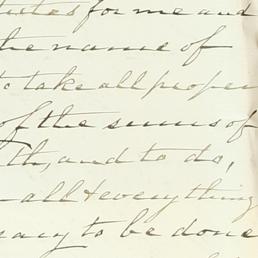 tutes for me and
the name of
to take all proper
of the sums of
th, and to do,
all & everything
sary to be done